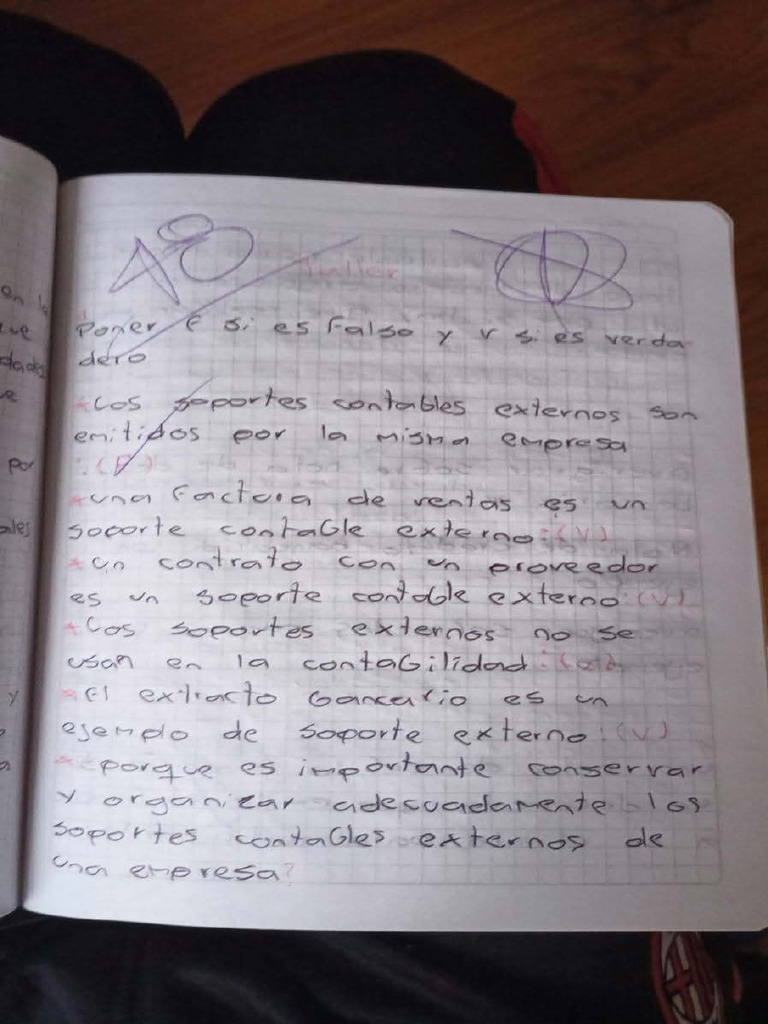 Taller
Poner F si es Falso y V si es verda
dero
*Los soportes contables externos son
emitidos por la misma empresa
:(F)
*una Factura de ventas es un
soporte contable externo:(V)
*un contrato con un proveedor
es un soporte contable externo:(V)
*Los soportes externos no se
usan en la contabilidad:
*El extracto bancario es un
ejemplo de soporte externo:(V)
*¿porque es importante conservar
y organizar adecuadamente los
soportes contables externos de
una empresa?